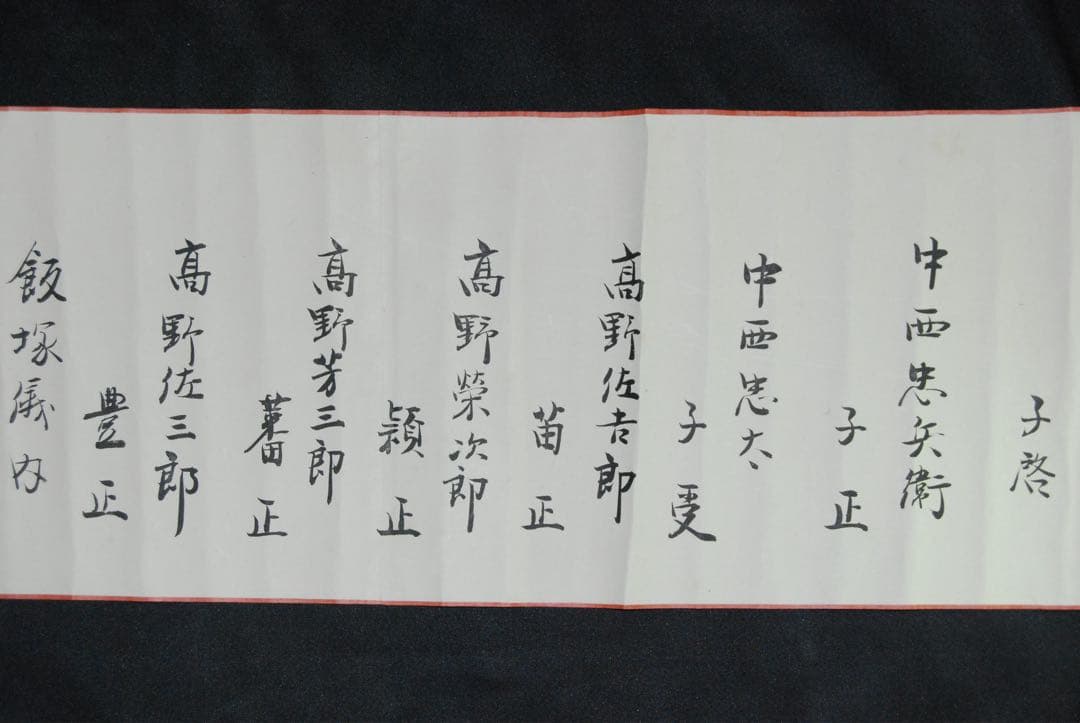 子啓
中西忠兵衛
子正
中西忠太
子受
高野佐吉郎
苗正
高野榮次郎
穎正
高野芳三郎
蕃正
高野佐三郎
豊正
飯塚儀内